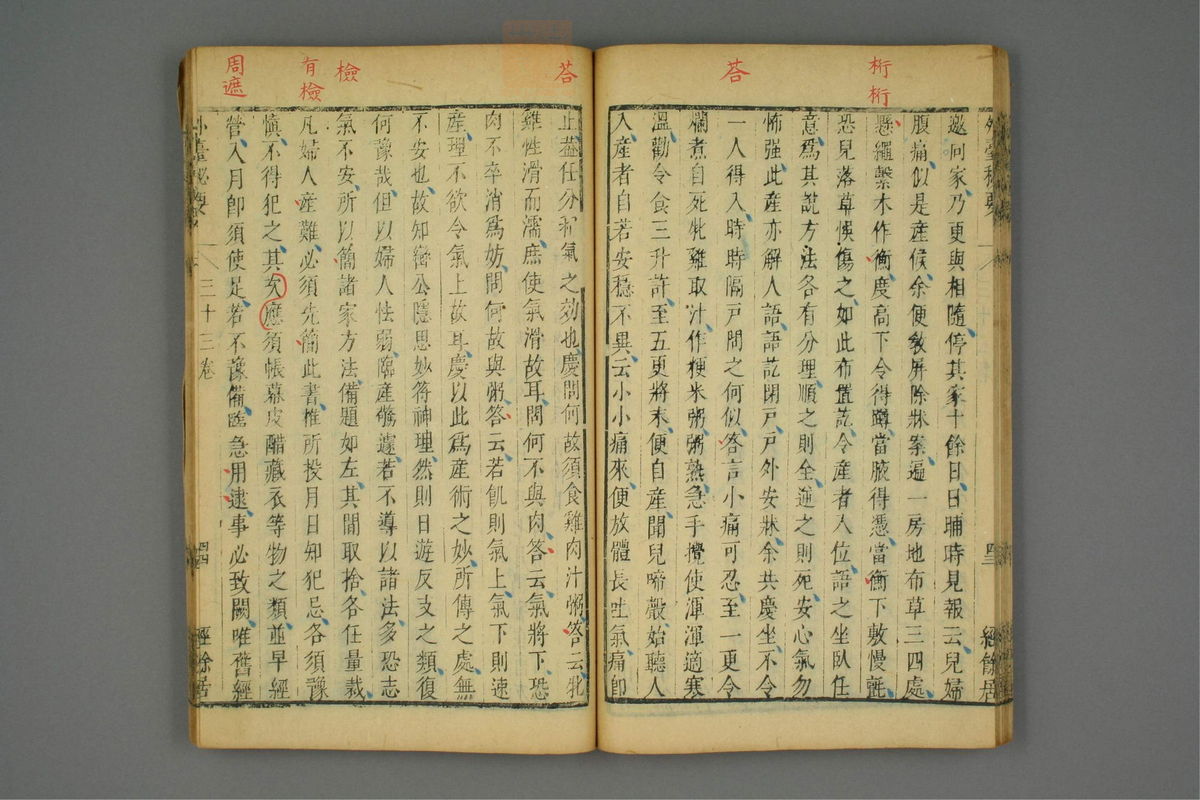 桁桁
荅
邀向家乃更與相隨停其家十餘日日晡時見報云兒婦
腹痛似是產候余便敎屏除牀案遍一房地布草三四處
懸繩繫木作衡度高下令得蹲當腋得憑當衡下敷慢氈
恐兒落草悞傷之如此布置訖令產者入位語之坐臥任
意爲其說方法各有分理順之則全逆之則死安心氣勿
怖强此產亦解人語語訖閉戶戶外安牀余共慶坐不令
一人得入時時隔戶問之何似答言小痛可忍至一更令
爛煮自死牝雞取汁作粳米粥粥熟急手攪使渾渾適寒
溫勸令食三升許至五更將末便自產聞兒啼聲始聽人
入產者自若安穩不異云小小痛來便放體長吐氣痛卽
荅
檢
有檢
周遮
止葢任分和氣之効也慶問何故須食雞肉汁粥答云牝
雞性滑而濡庶使氣滑故耳問何不與肉答云氣將下恐
肉不卒消爲妨問何故與粥答云若飢則氣上氣下則速
產理不欲令氣上故耳慶以此爲產術之妙所傳之處無
不安也故知巒公隱思妙符神理然則日遊反支之類復
何豫哉但以婦人怯弱臨產慞遽若不導以諸法多恐志
氣不安所以簡諸家方法備題如左其間取捨各任量裁
凡婦人產難必須先簡此書推所投月日知犯忌各須豫
愼不得犯之其次應須帳幕皮醋藏衣等物之類並早經
營入月卽須使足若不豫備臨急用逮事必致闕唯舊經
外臺秘要
三十三卷
四四
經餘居